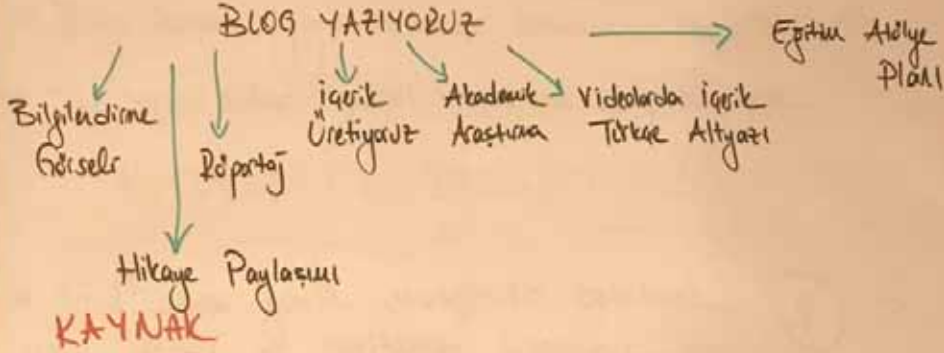 BLOG YAZIYORUZ
Eğitim Atölye
Planı
Bilgilendirme
Görseli
Röportaj
İçerik
Üretiyoruz
Akademik
Araştırma
Videolarda İçerik
Türkçe Altyazı
Hikaye Paylaşımı
KAYNAK